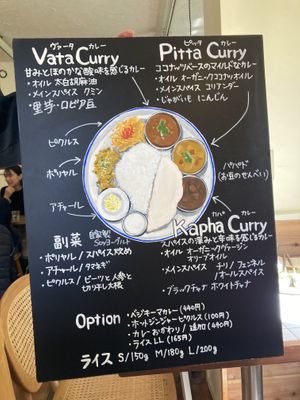 ヴァータ カレー
Vata Curry
甘みとほのかな酸味を感じるカレー
・オイル 太白胡麻油
・メインスパイス クミン
・里芋・ロビア豆
ピッタ カレー
Pitta Curry
ココナッツベースのマイルドなカレー
・オイル オーガニックココナッツオイル
・メインスパイス コリアンダー
・じゃがいも にんじん
ピクルス
ポリヤル
アチャール
自家製
Soyヨーグルト
パパド
(お豆のせんべい)
カパ カレー
Kapha Curry
スパイスの深みと辛味を感じるカレー
・オイル オーガニックヴァージン
オリーブオイル
・メインスパイス チリ/フェンネル
/オールスパイス
・ブラックチャナ ホワイトチャナ
副菜
・ポリヤル/スパイス炒め
・アチャール/タマネギ
・ピクルス/ビーツと人参と
切り干し大根
Option
・ベジキーマカレー(440円)
・ホットジンジャーピクルス(100円)
・カレーおかわり/追加(440円)
・ライスLL(165円)
ライス S/150g M/180g L/200g